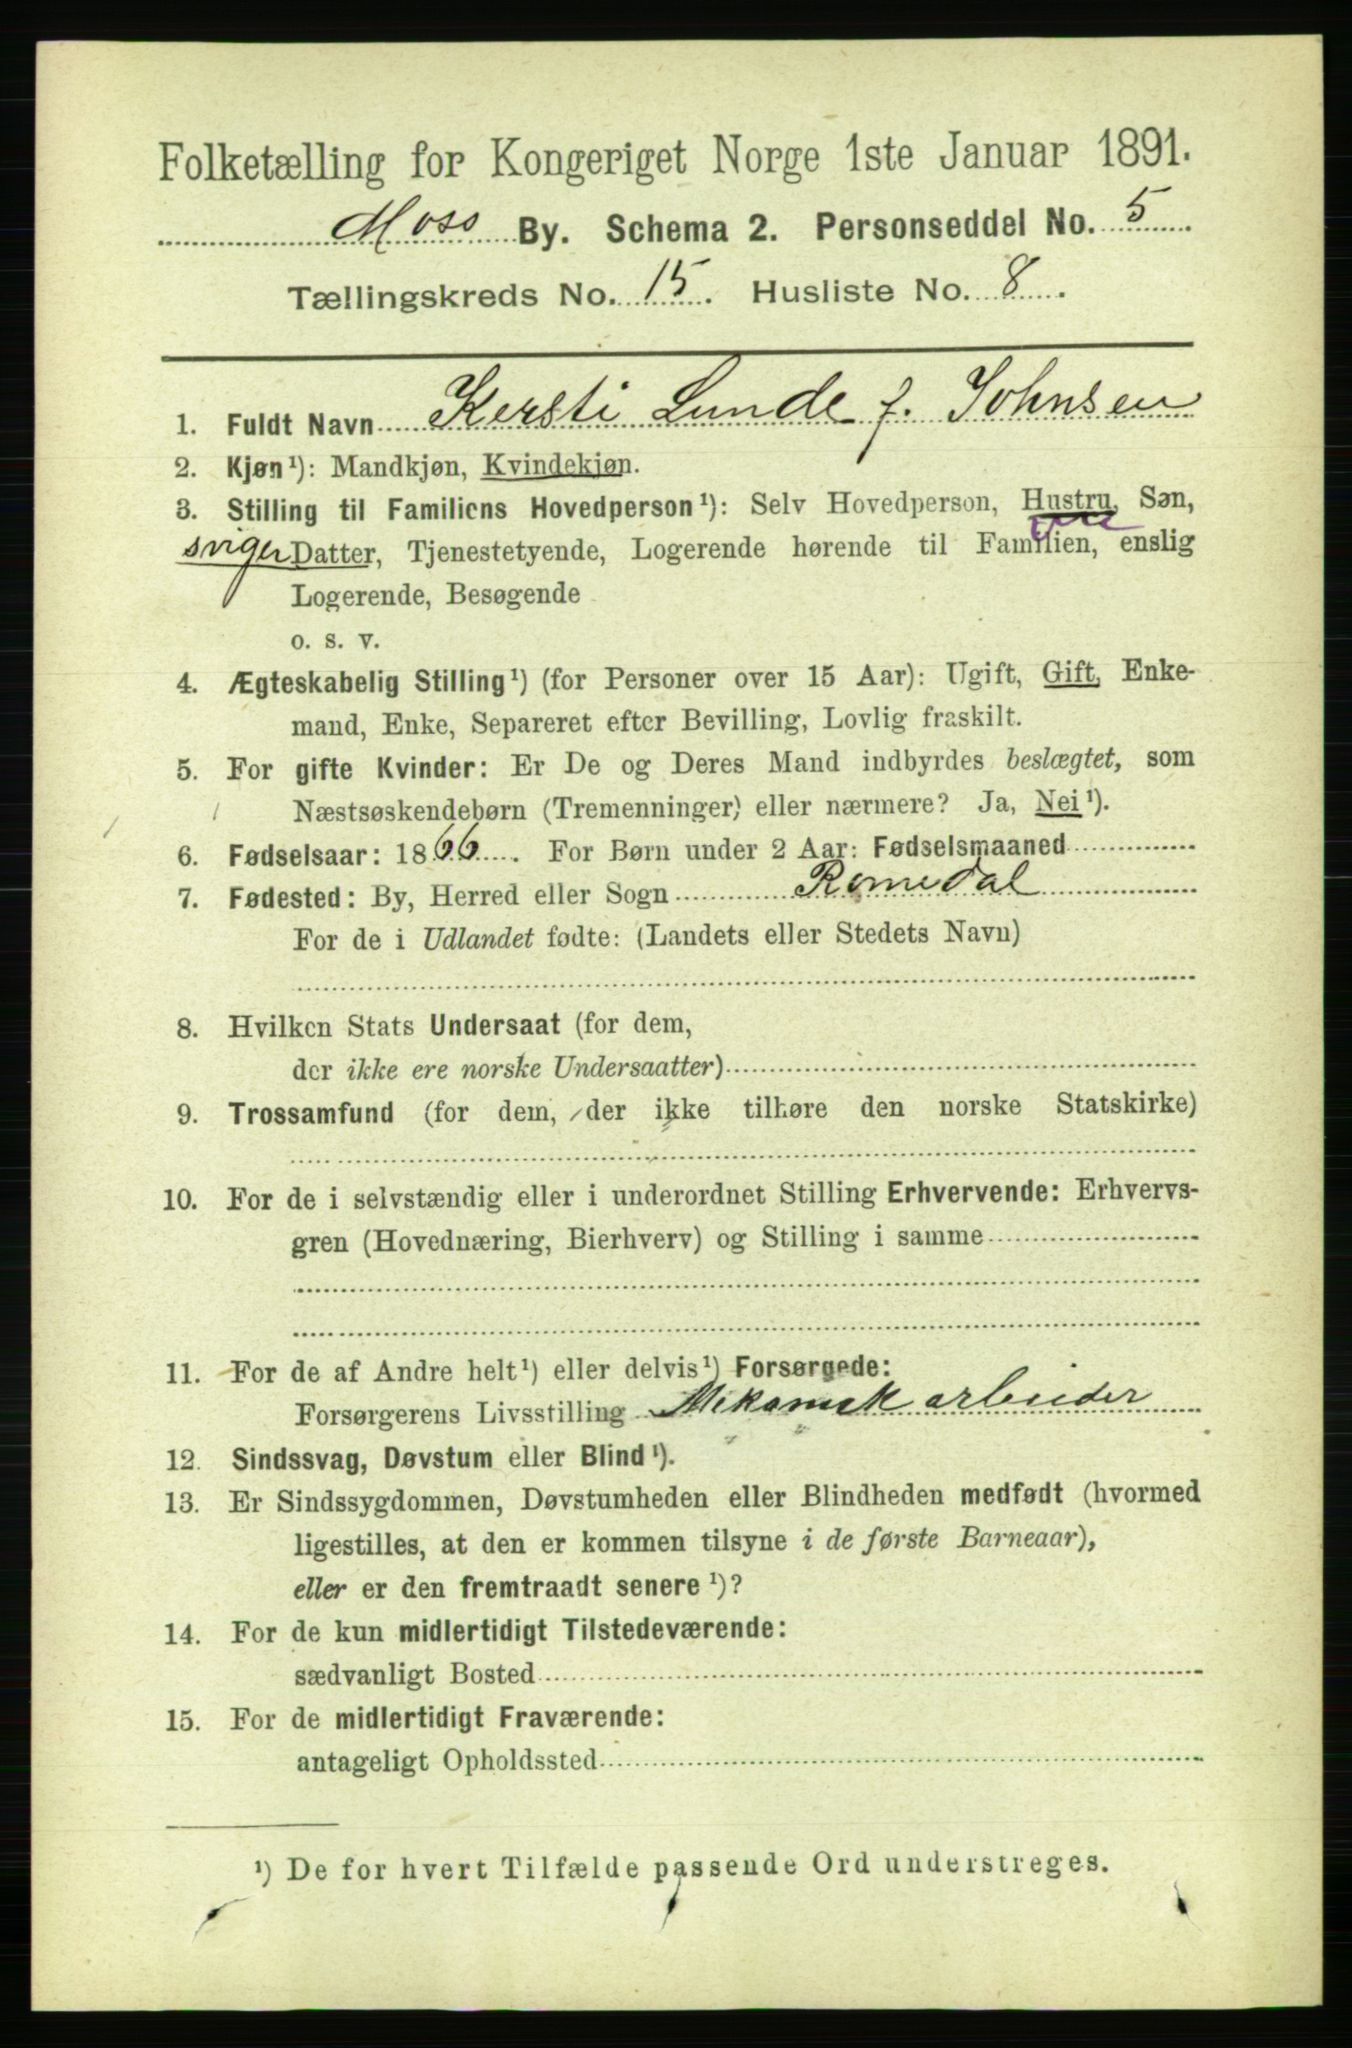 Folketælling for Kongeriget Norge 1ste Januar 1891.
Moss By. Schema 2. Personseddel No. 5
Tællingskreds No. 15. Husliste No. 8.
1. Fuldt Navn Kersti Lunde f. Johnsen
2. Kjøn¹): Mandkjøn, Kvindekjøn.
3. Stilling til Familiens Hovedperson¹): Selv Hovedperson, Hustru, Søn,
sviger Datter, Tjenestetyende, Logerende hørende til Familien, enslig
Logerende, Besøgende
o. s. v.
4. Ægteskabelig Stilling¹) (for Personer over 15 Aar): Ugift, Gift, Enke-
mand, Enke, Separeret efter Bevilling, Lovlig fraskilt.
5. For gifte Kvinder: Er De og Deres Mand indbyrdes beslægtet, som
Næstsøskendebørn (Tremenninger) eller nærmere? Ja, Nei¹).
6. Fødselsaar: 1866. For Børn under 2 Aar: Fødselsmaaned
7. Fødested: By, Herred eller Sogn Romedal
For de i Udlandet fødte: (Landets eller Stedets Navn)
8. Hvilken Stats Undersaat (for dem,
der ikke ere norske Undersaatter)
9. Trossamfund (for dem, der ikke tilhøre den norske Statskirke)
10. For de i selvstændig eller i underordnet Stilling Erhvervende: Erhvervs-
gren (Hovednæring, Bierhverv) og Stilling i samme
11. For de af Andre helt¹) eller delvis¹) Forsørgede:
Forsørgerens Livsstilling Mekanisk arbeider
12. Sindssvag, Døvstum eller Blind¹).
13. Er Sindssygdommen, Døvstumheden eller Blindheden medfødt (hvormed
ligestilles, at den er kommen tilsyne i de første Barneaar),
eller er den fremtraadt senere¹)?
14. For de kun midlertidigt Tilstedeværende:
sædvanligt Bosted
15. For de midlertidigt Fraværende:
antageligt Opholdssted
¹) De for hvert Tilfælde passende Ord understreges.